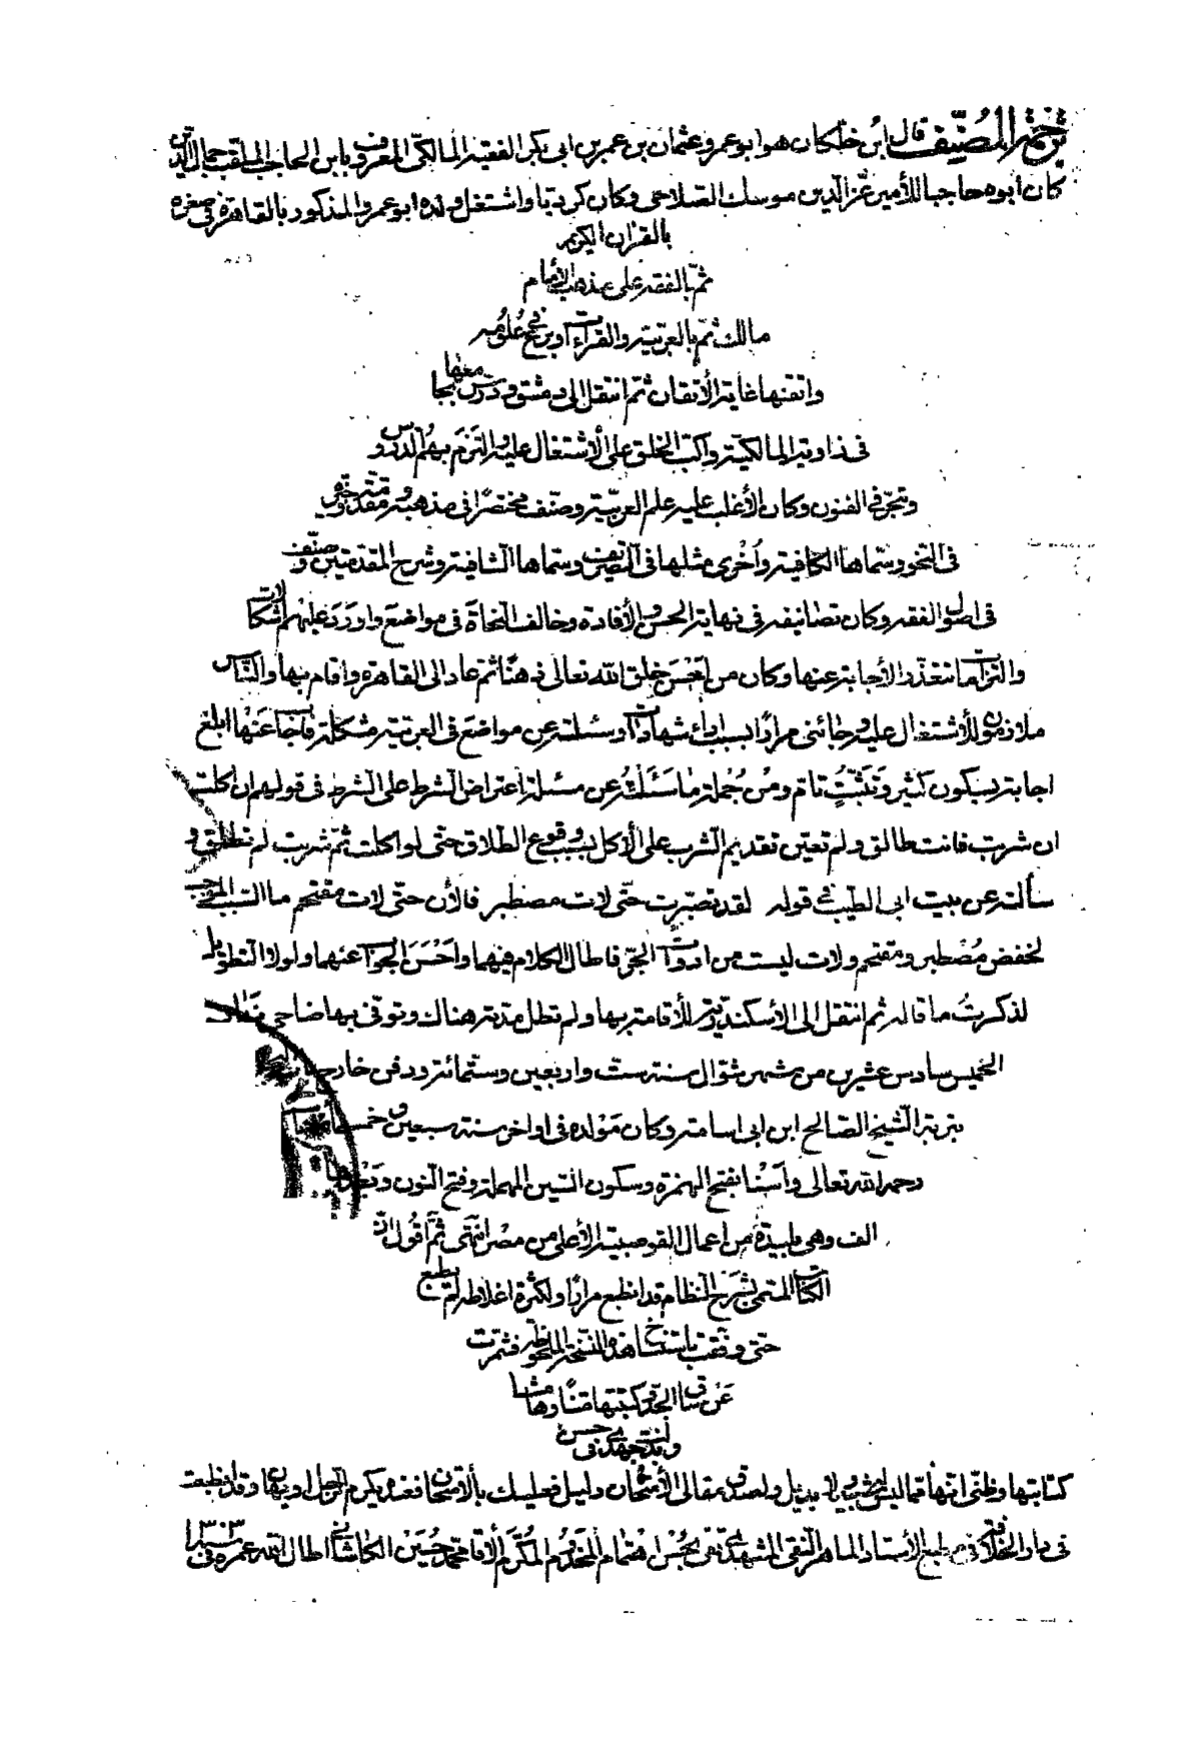 ترجمة المصنّف قال ابن خلّكان هو ابو عمرو عثمان بن عمر بن ابى بكر الفقيه المالكىّ المعروف بابن الحاجب الملقب جمال الدّين
كان ابوه حاجبا للأمير عزّ الدّين موسك الصّلاحى وكان كرديّا واشتغل ولده ابو عمرو المذكور بالقاهرة فى صغره
بالقران الكريم
ثمّ بالفقه على مذهب الأمام
مالك ثمّ بالعربيّة والقراءات وبرع فى علومه
واتقنها غاية الأتقان ثمّ انتقل الى دمشق ودرّس بجامعها
فى زاوية المالكيّة واكبّ الخلق على الأشتغال عليه والتزم بهم الدّروس
وتبحّر فى الفنون وكان الأغلب عليه علم العربيّة وصنّف مختصرًا فى مذهبه ومقدّمة وجيزة
فى النّحو وسمّاها الكافية واُخْرى مثلها فى التّصريف وسمّاها الشّافية وشرح المقدّمتين وصنّف
فى اصول الفقه وكان تصانيفه فى نهاية الحسن والأفادة وخالف النّحاة فى مواضعَ واوردَ عليهم اشكالات
والزامات تتعذّر الأجابة عنها وكان من احْسَن خلق الله تعالى ذهنًا ثمّ عاد الى القاهرة واقام بها والنّاس
ملازمون للأشتغال عليه وجائنى مرارًا بسبب اداء شهادات وسئلته عن مواضعَ فى العربيّة مشكلة فاجاب عَنْها ابلغ
اجابة بسكون كثير وتَثبُّتٍ تام ومن جُملة ما سَئَلْتُه عن مسئلة اعتراض الشّرط على الشّرط فى قولهم ان اكلت
ان شربت فانت طالق ولم تعيّن تقديم الشّرب على الأكل بسبب وقوع الطّلاق حتّى لو اكلت ثمّ شربت لم تطلّق و
سألته عن بيت ابى الطيّب فى قوله لقد تصبّرت حتّى لات مصطبر فالأن حتّى لات مقتحم ما السّبب الموجب
لخفض مُصْطبر ومقتحم ولات ليست من ادوات الجرّ فاطال الكلام فيهما واَحْسَنَ الجواب عنهما ولولا التّطويل
لذكرتُ ما قاله ثم انتقل الى الأسكندريّة للأقامة بها ولم تطل مدّته هناك وتوفّى بها ضاحى نهار
الخميس سادس عشرين من شهر شوّال سنة ست واربعين وستّمائة ودفن خارج
بتربة الشّيخ الصّالح ابن ابى اسامة وكان مَوْلده فى اواخر سنة سبعين وخمسمائة
رحمه الله تعالى واَسْنا بفتح الهمزة وسكون السّين المهملة وفتح النّون وبَعْدها
الف وهى بليدة من اعمال القوصيّة الأعلى من مصر انتهى ثمّ اقُول انّ
الكتاب المسمّى بشرح النّظام قد انطبع مرارًا ولكثرة اغلاطه لم يطبع
حتى وفّقت باستنساخ هذه النّسخة الملحوظة فشمّرت
عَنْ ساق الجدّ وكتبتها متنًا وهامشا
وبذلت جهدى فى حسن
كتابتها وظنّى انّها ممّا ليس له شبيه ولا بديل ولصدق مقالى الأمتحان دليل فعليك بالأمتحان فعنده يكرم الرّجل او يهان وقد انطبعت
فى دار الخلافة فى مطبع الأستاد الماهر النّقى المشهدى تقى بحُسْن اهتمام المخدوم المكرّم الأقا محمّد حُسَيْن الكاشانى اطال الله عمره فى سنة ١٣٠٣